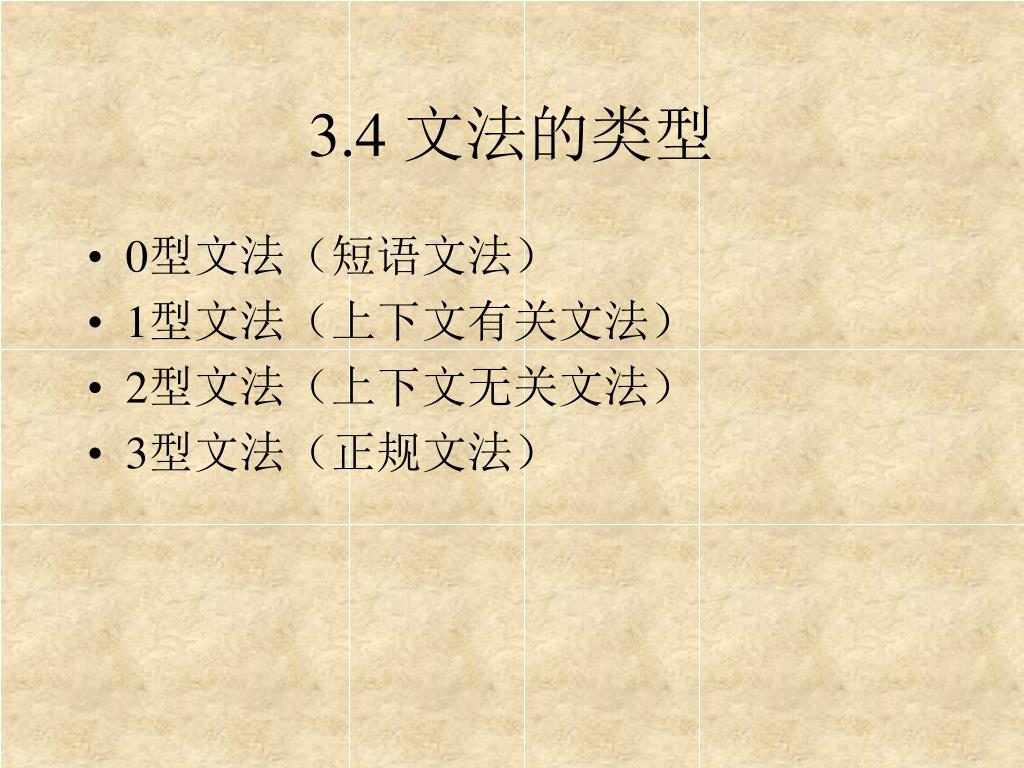 3.4 文法的类型
• 0型文法（短语文法）
• 1型文法（上下文有关文法）
• 2型文法（上下文无关文法）
• 3型文法（正规文法）